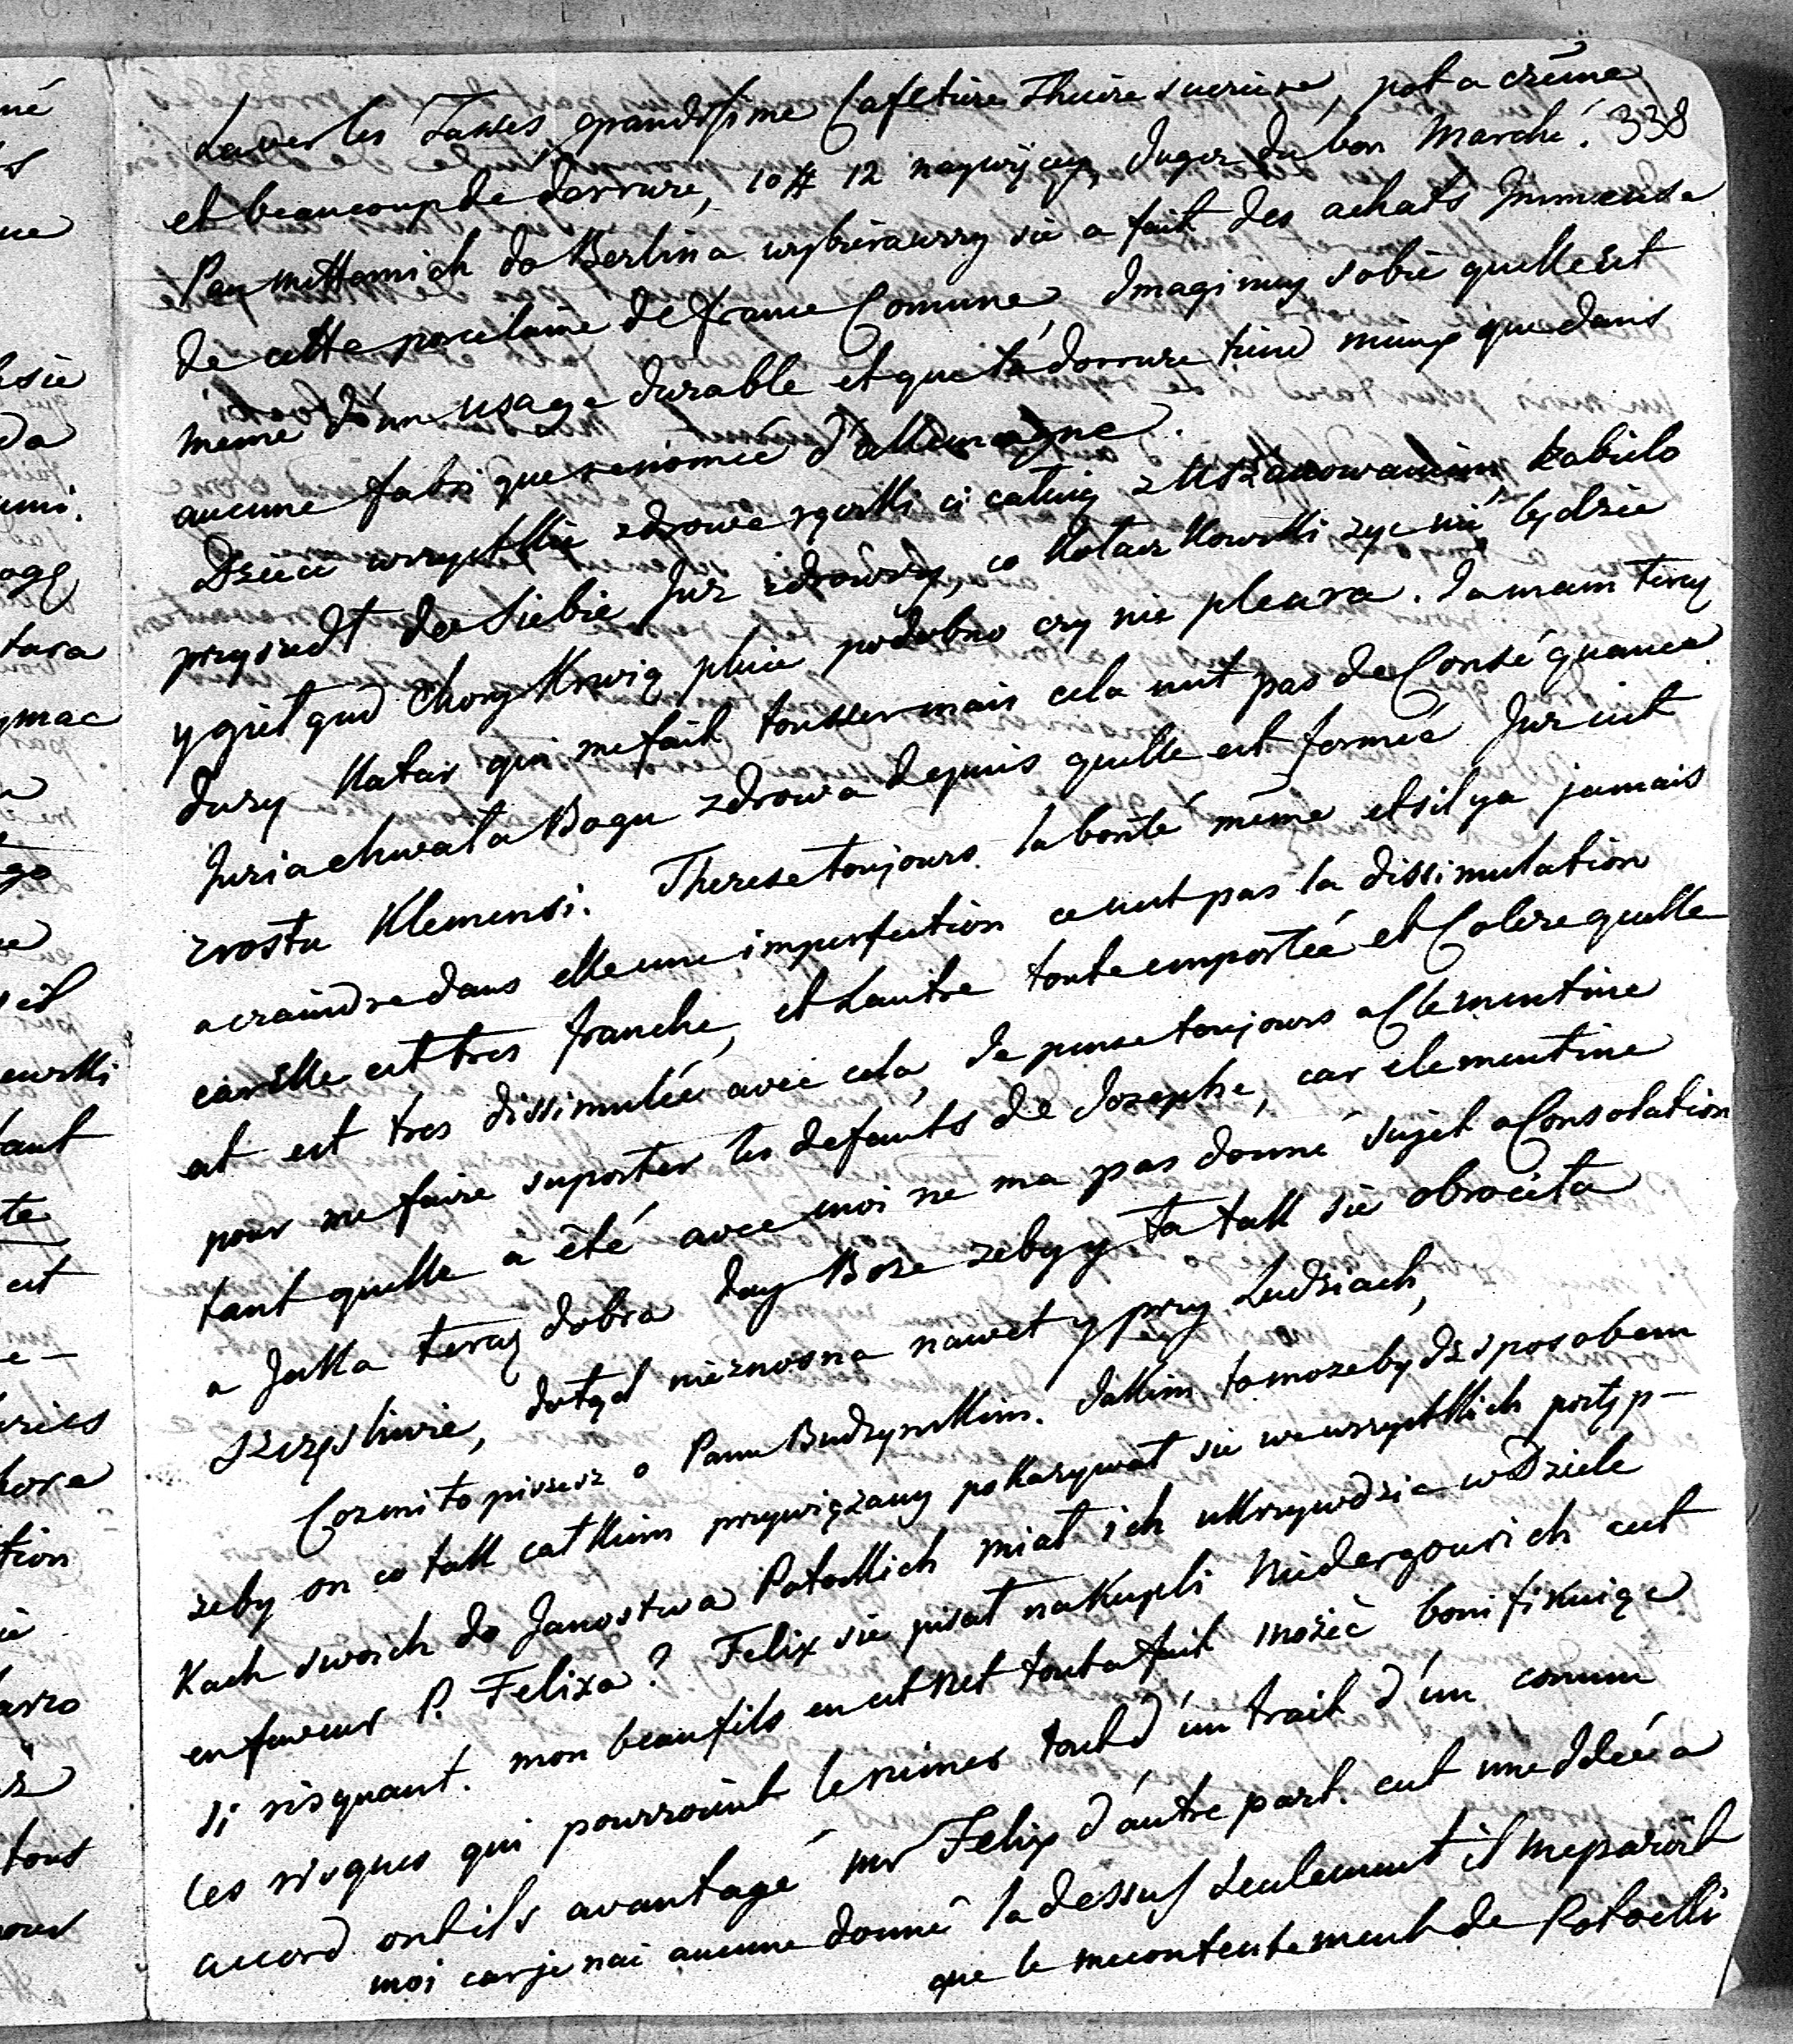 Laver les Tasses, grandissime Cafetiere Theiere sucriere, pot a crême
338
et beaucoup de dorrure, 10 # 12 naywięcey, Jugez du bon Marché.
Pan do Berlina wybierawszy sie a fait des achats Jmmense
de cette porcelaine de france Comune, Jmaginuy sobie quelle est
même d'un usage durable et que la dorrure tient mieux que dans
aucune fabrique renomée d'allemagne.
Dzieci wszystkie zdrowe rączki ci całuią z Uszanowaniem kobieło
przyszedł do siebie Juz zdrowszy, co Kołaczkowski zyc nie będzie
y gięt qu'd chory krwią pluie podobno czy nie pleura. Ja mam teraz
duzy Katar qui me fait tousser mais cela n'est pas de Conséquance
Juzia chwała Bogu zdrowa depuis quelle est formée Juz iest
zrostu Klemensi. Therese toujours la bonté même et sil ya jamais
a craindre dans elle une imperfection ce nest pas la dissimulation
car elle est tres franche, et Lautre toute emportée et Colere quelle
est est tres dissimulée avec cela, Je pense toujours a Clementine
pour me faire suporter les defauts de Josephe, car clementine
tant quelle a êté avec moi ne ma pas donné sujet a Consolation
a Jaka teraz dobra day Boze zeby y ta tak sie obrociła
szczęsliwie, dotąd nieznosna nawet y przy Ludziach,
Cozmi to piszesz o Panu Budzynskim. Jakim to moze bydz sposobem
zeby on co tak całkim przywiązany pokazywał sie we wszystkich postęp-
kach swoich do Janostwa Potockich miał ich ukrzywdzic w Dziele
en faveur P. Felixa? Felix sie pisał na Kupli Niedergourich cest
si risquant. mon beaufils en est net tout a fait mozeć bonifikuiąc
les risques qui pourroient le ruiner tout d'un trait d'un comun
accord ont ils avantagé mr Felix d'autre part. cest une Jdeé a
moi car je nai aucune donné la dessus seulement il me paroit
que le mecontentement de Potocki